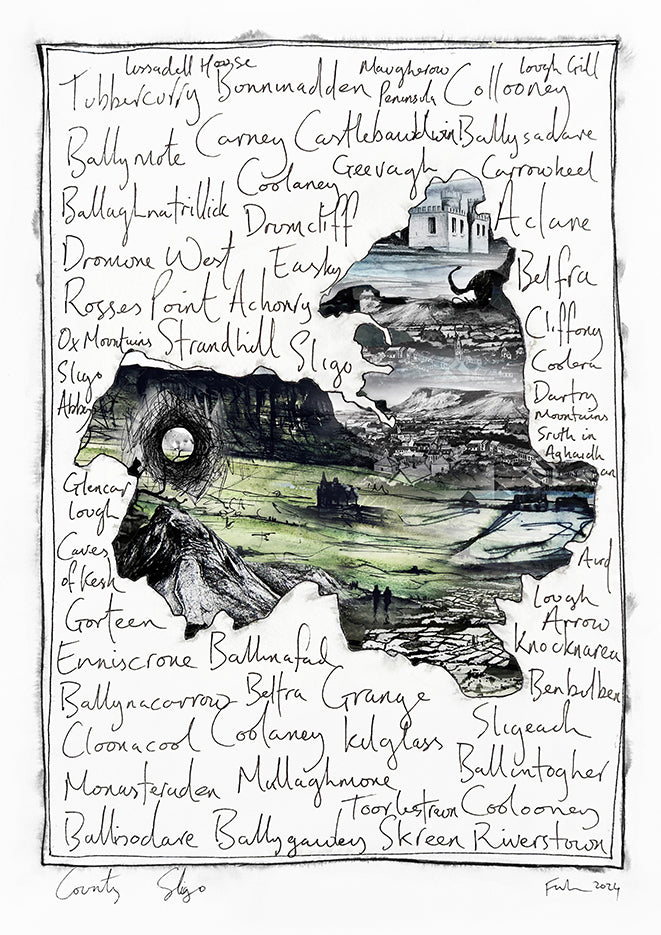 Lissadell House Maugherow Lough Gill
Tubbercurry Bunninadden Peninsula Collooney
Ballymote Carney Castlebawdwin Ballysadare
Coolaney Geevagh Carrowkeel
Ballaghnatrillick Drumcliff Aclane
Dromore West Easky Belfra
Rosses Point Achonry
Ox Mountains Strandhill Sligo Cliffony
Sligo Coolera
Abbey Dartry
Mountains
Sruth in
Aghaidh
an
Glencar Aird
Lough
Caves Lough
of Kesh Arrow
Gorteen Knocknarea
Enniscrone Ballinafad
Ballynacarrow Beltra Grange Benbulben
Cloonacool Coolaney Kilglass Sligeach
Monasteraden Mullaghmore Ballintogher
Toorlestraun Coolooney
Ballisodare Ballygawley Skreen Riverstown
County Sligo 2024